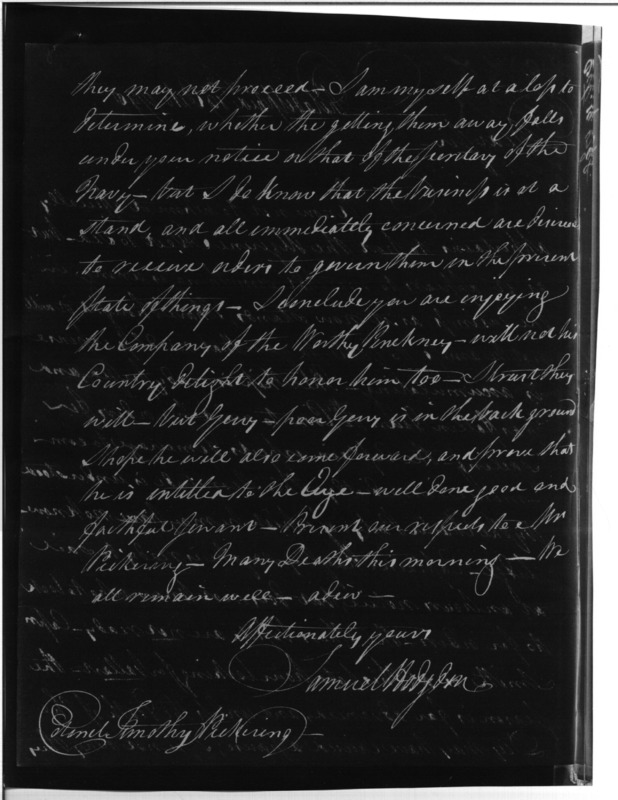 they may not proceed – I am myself at a loss to
determine, whether the getting them away falls
under your notice or that of the Secretary of the
Navy – but I do know that the business is at a
stand, and all immediately concerned are desirous
to receive orders to govern them in the present
State of things – I conclude you are enjoying
the Company of the Worthy Pinckney – will not his
Country delight to honor him too – I trust they
will – but Gerry – poor Gerry is in the back ground
I hope he will also come forward, and prove that
he is intitled to the – well done good and
faithful Servant – Present our respects to Mr
Pickering – Many Deaths this morning – We
all remain well – adieu –
Affectionately yours
Samuel Hodgdon
Colonel Timothy Pickering –